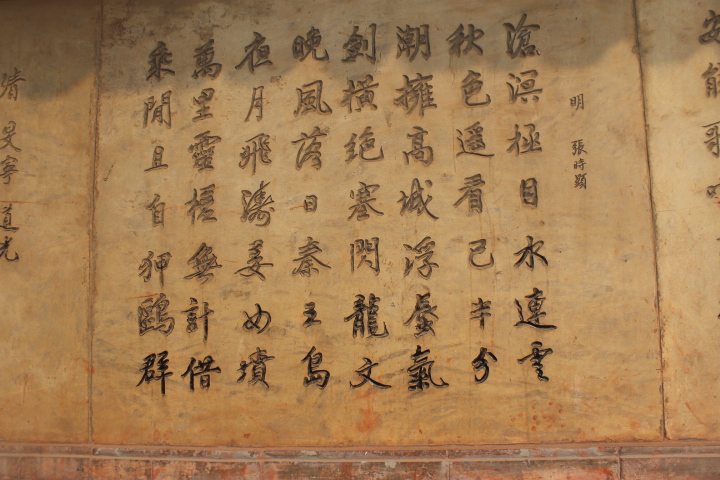 安能
明 張時顯
滄溟極目水連雲
秋色遥看已半分
潮擁高城浮蜃氣
劍橫絕塞閃龍文
晚風落日秦王島
夜月飛濤姜女墳
萬里靈槎無計借
乘閒且自狎鷗群
清 旻寧 道光